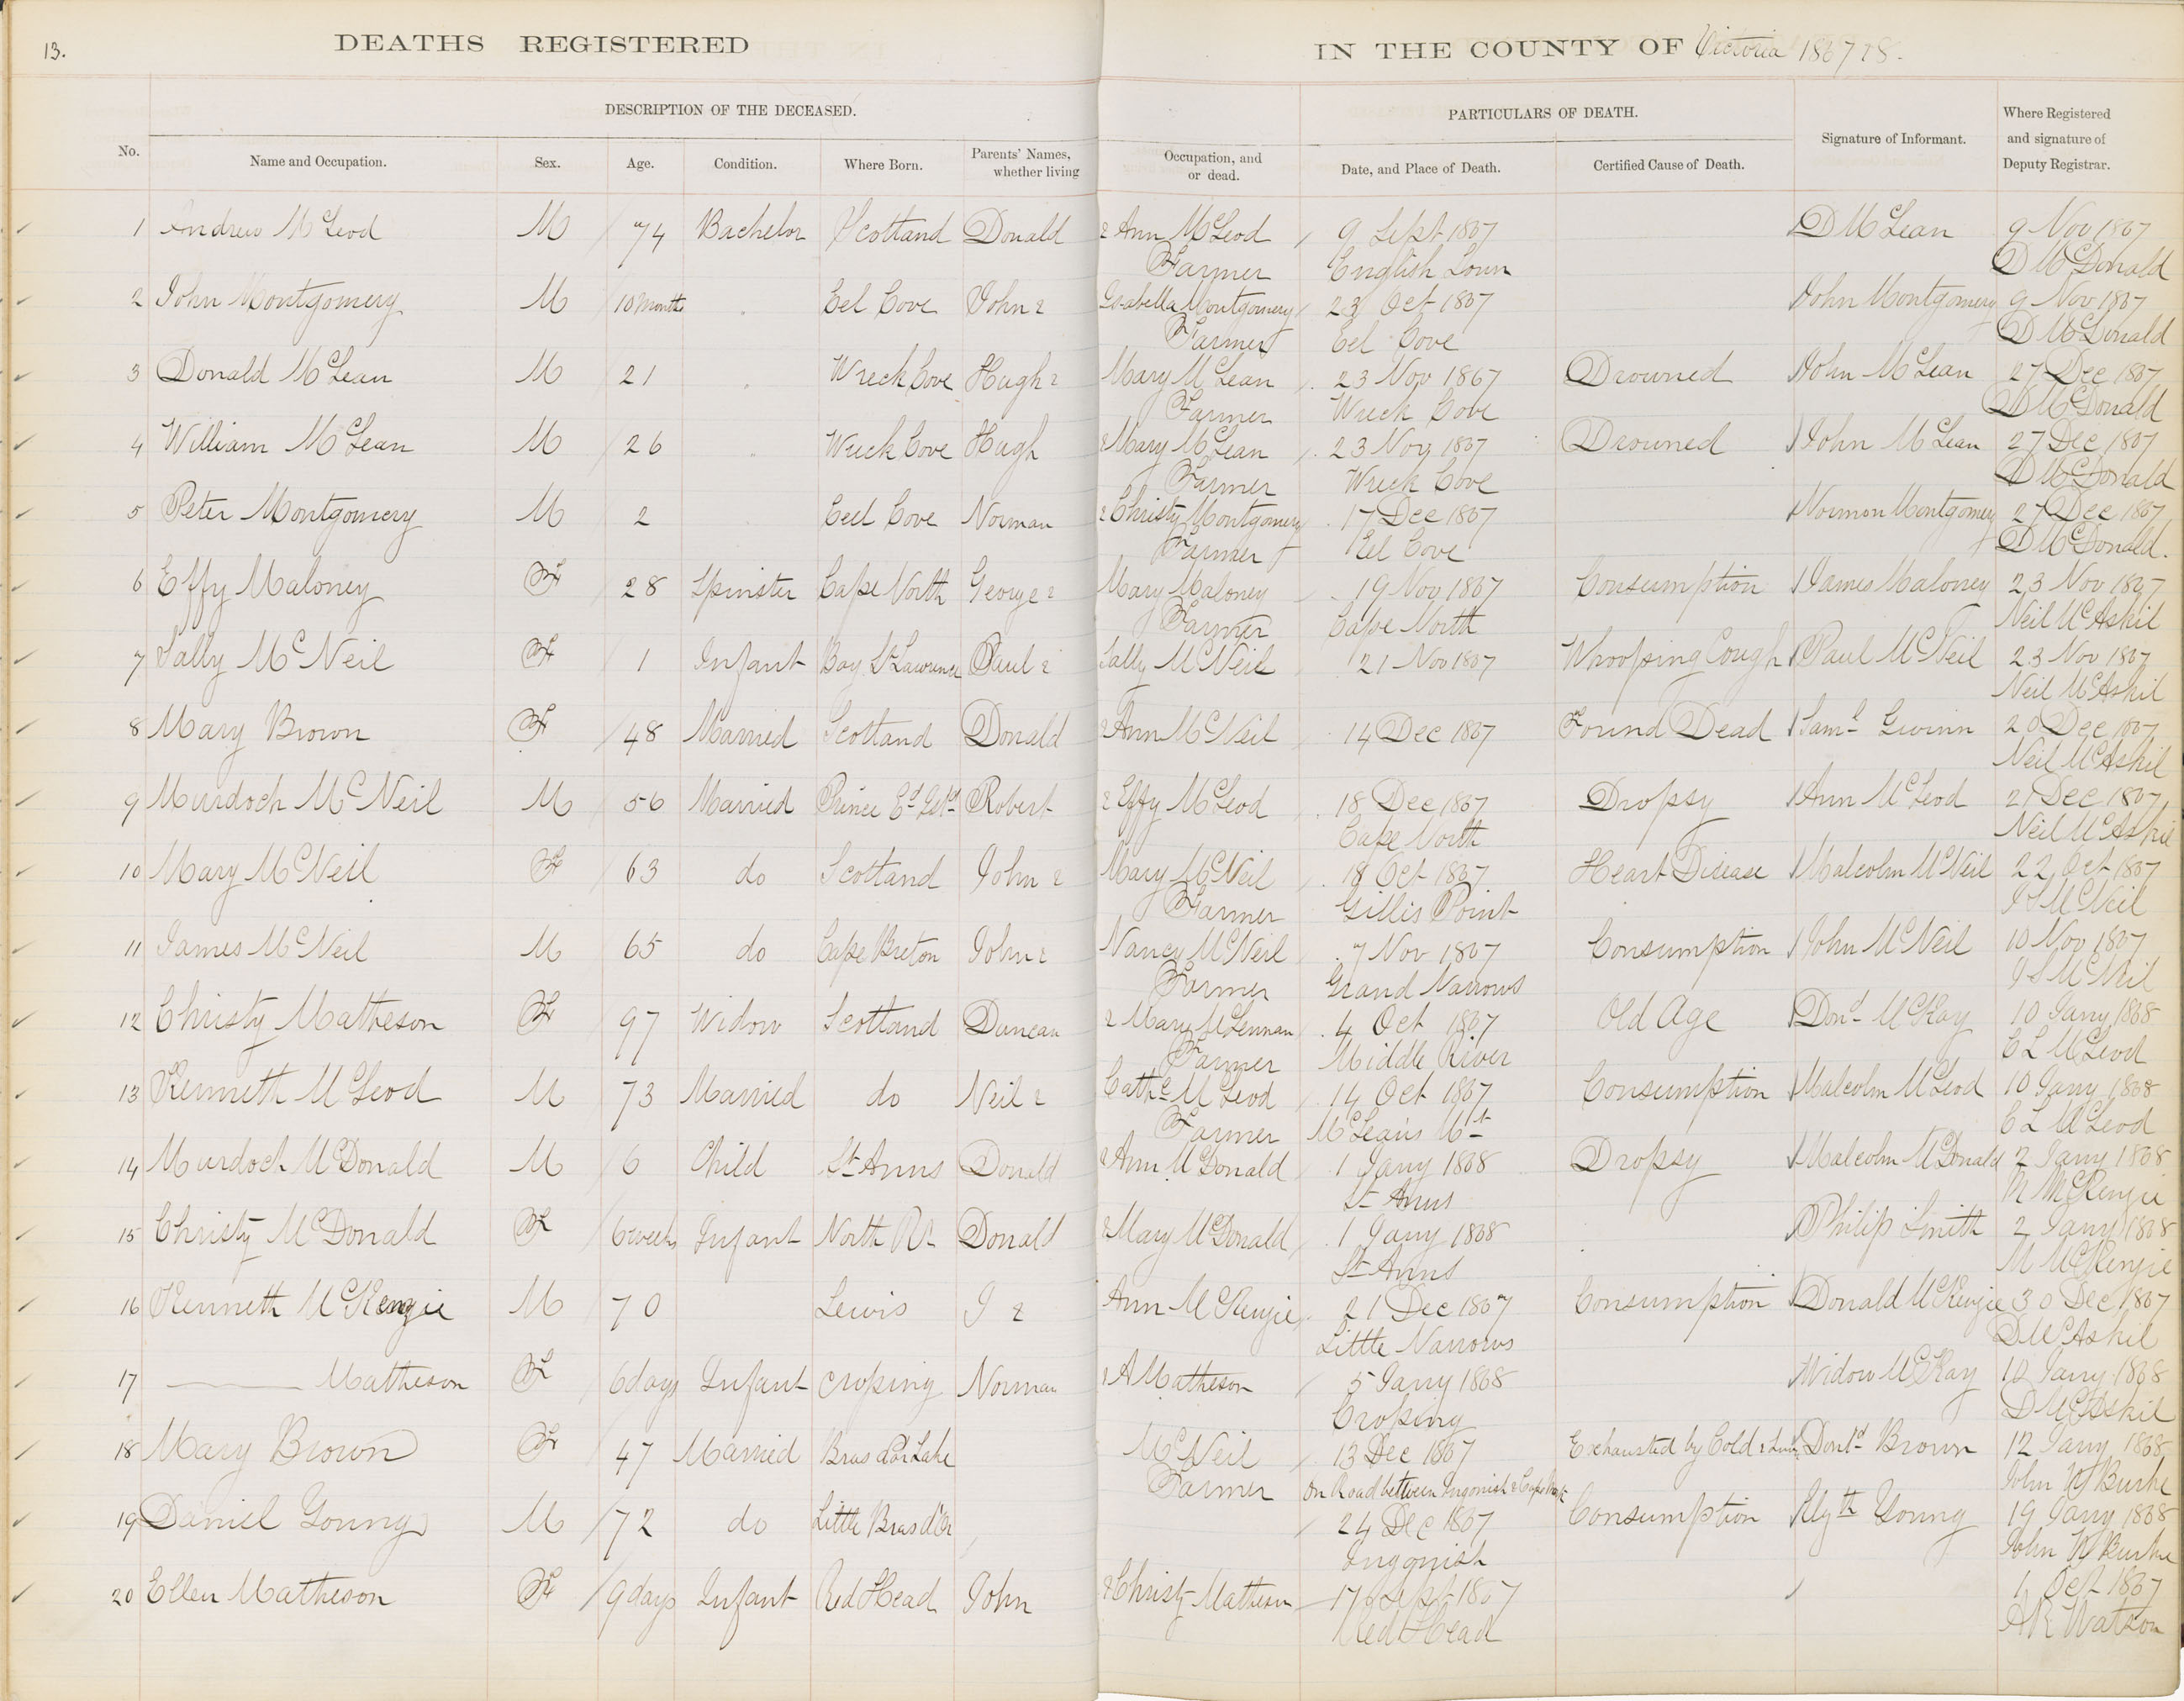 13.
DEATHS REGISTERED IN THE COUNTY OF Victoria 1867 & 8.
DESCRIPTION OF THE DECEASED. PARTICULARS OF DEATH.
No. Name and Occupation. Sex. Age. Condition. Where Born. Parents' Names, whether living Occupation, and or dead. Date, and Place of Death. Certified Cause of Death. Signature of Informant. Where Registered and signature of Deputy Registrar.
1 Andrew McLeod M 74 Bachelor Scotland Donald & Ann McLeod 9 Sept 1867 D McLean 9 Nov 1867
Farmer English Town D McDonald
2 John Montgomery M 10 months Eel Cove John & Isabella Montgomery 23 Oct 1867 John Montgomery 9 Nov 1867
Farmer Eel Cove D McDonald
3 Donald McLean M 21 Wreck Cove Hugh & Mary McLean 23 Nov 1867 Drowned John McLean 27 Dec 1867
Farmer Wreck Cove D McDonald
4 William McLean M 26 Wreck Cove Hugh & Mary McLean 23 Nov 1867 Drowned John McLean 27 Dec 1867
Farmer Wreck Cove D McDonald
5 Peter Montgomery M 2 Eel Cove Norman & Christy Montgomery 17 Dec 1867 Norman Montgomery 27 Dec 1867
Farmer Eel Cove D McDonald.
6 Effy Maloney F 28 Spinster Cape North George & Mary Maloney 19 Nov 1867 Consumption James Maloney 23 Nov 1867
Farmer Cape North Neil McAskil
7 Sally McNeil F 1 Infant Bay St Lawrence Paul & Sally McNeil 21 Nov 1867 Whoopsing Cough Paul McNeil 23 Nov 1867
Neil McAskil
8 Mary Brown F 48 Married Scotland Donald & Ann McNeil 14 Dec 1867 Found Dead Saml Gwinn 20 Dec 1867
Neil McAskil
9 Murdoch McNeil M 56 Married Prince Ed Isld Robert & Effy McLeod 18 Dec 1867 Dropsy Ann McLeod 21 Dec 1867
Cape North Neil McAskil
10 Mary McNeil F 63 do Scotland John & Mary McNeil 18 Oct 1867 Heart Disease Malcolm McNeil 22 Oct 1867
Farmer Gillis Point J S McNeil
11 James McNeil M 65 do Cape Breton John & Nancy McNeil 7 Nov 1867 Consumption John McNeil 10 Nov 1867
Farmer Grand Narrows J S McNeil
12 Christy Matheson F 97 Widow Scotland Duncan & Mary McLennan 4 Oct 1867 Old Age Dond McKay 10 Jany 1868
Farmer Middle River C L McLeod
13 Kenneth McLeod M 73 Married do Neil & Cathe McLeod 14 Oct 1867 Consumption Malcolm McLeod 10 Jany 1868
Farmer McLeans Mt C L McLeod
14 Murdoch McDonald M 6 Child St Anns Donald & Ann McDonald 1 Jany 1868 Dropsy Malcolm McDonald 2 Jany 1868
St Anns M McKenzie
15 Christy McDonald F 6 weeks Infant North Rr Donald & Mary McDonald 1 Jany 1868 Philip Smith 2 Jany 1868
St Anns M McKenzie
16 Kenneth McKenzie M 70 Lewis J & Ann McKenzie 21 Dec 1867 Consumption Donald McKenzie 30 Dec 1867
Little Narrows D McAskil
17 ——— Matheson F 6 days Infant Croping Norman & A Matheson 5 Jany 1868 Widow McKay 12 Jany 1868
Croping D McAskil
18 Mary Brown F 47 Married Bras d'Or Lake McNeil 13 Dec 1867 Exhausted by Cold & Donld Brown 12 Jany 1868
Farmer On Road between Ingonish & Cape North John W Burke
19 Daniel Young M 72 do Little Bras d'Or 24 Dec 1867 Consumption Young 19 Jany 1868
Ingonish John W Burke
20 Ellen Matheson F 9 days Infant Red Head John & Christy Matheson 17 Sept 1867 1 Oct 1867
Red Head A R Watson